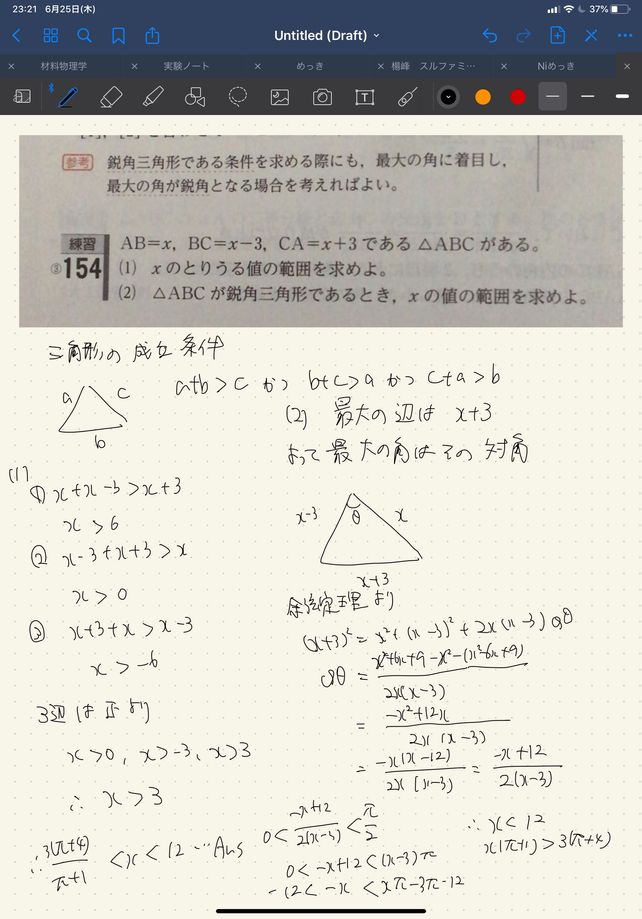 23:21 6月25日(木)
37%
Untitled (Draft)
材料物理学
実験ノート
めっき
楊峰 スルファミ…
Niめっき
参考 鋭角三角形である条件を求める際にも，最大の角に着目し，
最大の角が鋭角となる場合を考えればよい。
練習 AB=x，BC=x−3，CA=x+3 である △ABC がある。
③154 (1) x のとりうる値の範囲を求めよ。
(2) △ABC が鋭角三角形であるとき，x の値の範囲を求めよ。
三角形の成立条件
a c b
a+b>c かつ b+c>a かつ c+a>b
(1)
① x+x-3>x+3
x>6
② x-3+x+3>x
x>0
③ x+3+x>x-3
x>-6
3辺は正より
x>0, x>-3, x>3
∴ x>3
(2) 最大の辺は x+3
よって最大の角はその対角
x-3 θ x
x+3
余弦定理より
(x+3)²=x²+(x-3)²+2x(x-3)cosθ
cosθ=x²+6x+9-x²-(x²-6x+9)/2x(x-3)
=-x²+12x/2x(x-3)
=-x(x-12)/2x(x-3)=-x+12/2(x-3)
0<-x+12/2(x-3)<π/2
0<-x+12<(x-3)π
-12<-x<xπ-3π-12
∴ x<12
x(π+1)>3(π+4)
∴ 3(π+4)/π+1<x<12 … Ans